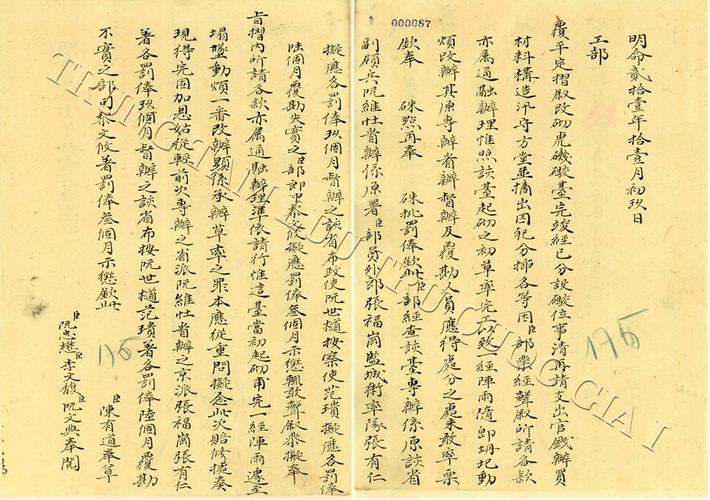 000087
明命貳拾壹年拾壹月初玖日
工部
覆平定摺叙改砌虎磯礮臺完竣經已分設礮位事清再請支出官錢辦買
材料構造汛守方堂並摘出因犯分插各等因臣部業經聲叙所請各款
亦属通融辦理惟照該臺起砌之初草率完工以致一經陣雨隨即坍圮動
煩改辦其原專辦省辦督辦及覆勘人員應得處分之處未敢率票
欽奉硃照再奉硃批罰俸欽此臣部經查該臺專辦係原該省
副領兵阮維壯省辦係原署臣部員外郎張福崗監城衛率隊張有仁
擬應各罰俸玖個月督辦之該省布政使阮世樀按察使范璝擬應各罰俸
陸個月覆勘失實之臣部郎中黎文攸擬應罰俸叁個月示懲輒敢聲叙恭擬奉
旨摺內所請各款亦属通融辦理準依請行惟這臺當初起砌甫完一經陣雨遽至
塌墜動煩一番改辦顯係承辦草率之罪本應從重問擬念此次賠修據奏
現得完固加恩姑從輕前次專辦之省派阮維壯省辦之京派張福崗張有仁
著各罰俸玖個月督辦之該省布按阮世樀范璝著各罰俸陸個月覆勘
不實之部司黎文攸著罰俸叁個月示懲欽此
臣陳有道奉草
臣阮忠懋臣李文馥臣阮文典奉閱
175
176
TRUNG TÂM LƯU TRỮ QUỐC GIA I